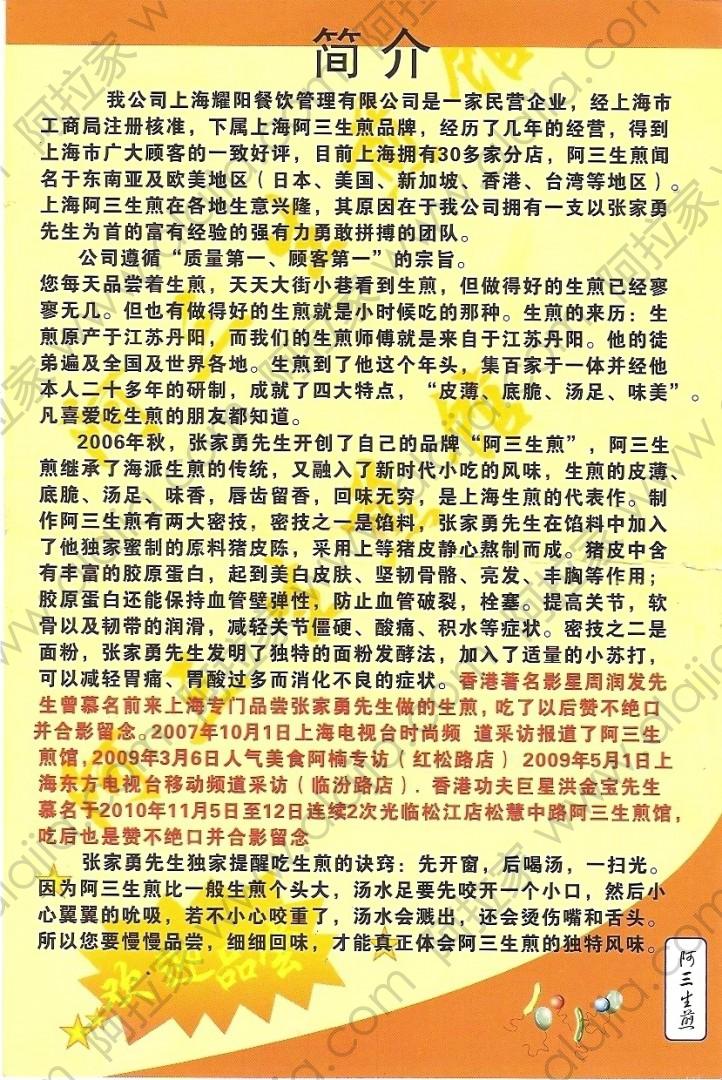 简介
我公司上海耀阳餐饮管理有限公司是一家民营企业，经上海市
工商局注册核准，下属上海阿三生煎品牌，经历了几年的经营，得到
上海市广大顾客的一致好评，目前上海拥有30多家分店，阿三生煎闻
名于东南亚及欧美地区（日本、美国、新加坡、香港、台湾等地区）。
上海阿三生煎在各地生意兴隆，其原因在于我公司拥有一支以张家勇
先生为首的富有经验的强有力勇敢拼搏的团队。
公司遵循“质量第一、顾客第一”的宗旨。
您每天品尝着生煎，天天大街小巷看到生煎，但做得好的生煎已经寥
寥无几。但也有做得好的生煎就是小时候吃的那种。生煎的来历：生
煎原产于江苏丹阳，而我们的生煎师傅就是来自于江苏丹阳。他的徒
弟遍及全国及世界各地。生煎到了他这个年头，集百家于一体并经他
本人二十多年的研制，成就了四大特点，“皮薄、底脆、汤足、味美”。
凡喜爱吃生煎的朋友都知道。
2006年秋，张家勇先生开创了自己的品牌“阿三生煎”，阿三生
煎继承了海派生煎的传统，又融入了新时代小吃的风味，生煎的皮薄、
底脆、汤足、味香，唇齿留香，回味无穷，是上海生煎的代表作。制
作阿三生煎有两大密技，密技之一是馅料，张家勇先生在馅料中加入
了他独家蜜制的原料猪皮陈，采用上等猪皮静心熬制而成。猪皮中含
有丰富的胶原蛋白，起到美白皮肤、坚韧骨骼、亮发、丰胸等作用；
胶原蛋白还能保持血管壁弹性，防止血管破裂，栓塞。提高关节，软
骨以及韧带的润滑，减轻关节僵硬、酸痛、积水等症状。密技之二是
面粉，张家勇先生发明了独特的面粉发酵法，加入了适量的小苏打，
可以减轻胃痛、胃酸过多而消化不良的症状。香港著名影星周润发先
生曾慕名前来上海专门品尝张家勇先生做的生煎，吃了以后赞不绝口
并合影留念。2007年10月1日上海电视台时尚频 道采访报道了阿三生
煎馆，2009年3月6日人气美食阿楠专访（红松路店） 2009年5月1日上
海东方电视台移动频道采访（临汾路店）．香港功夫巨星洪金宝先生
慕名于2010年11月5日至12日连续2次光临松江店松慧中路阿三生煎馆，
吃后也是赞不绝口并合影留念
张家勇先生独家提醒吃生煎的诀窍：先开窗，后喝汤，一扫光。
因为阿三生煎比一般生煎个头大，汤水足要先咬开一个小口，然后小
心翼翼的吮吸，若不小心咬重了，汤水会溅出，还会烫伤嘴和舌头。
所以您要慢慢品尝，细细回味，才能真正体会阿三生煎的独特风味。
阿三生煎馆
阿三生煎馆
欢迎品尝
阿三生煎
阿拉家 www.alajia.com